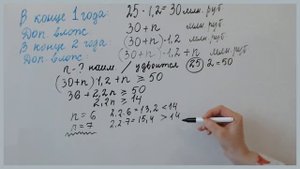 В конце 1 года: 25·1,2 = 30 млн.руб
Доп. влож 30 + n млн. руб
В конце 2 года: (30+n)·1,2 млн.руб.
Доп. влож (30+n)·1,2 + n млн.руб
n - ? наим / удвоится 25·2=50
(30+n)·1,2 + n ≥ 50
36 + 2,2n ≥ 50
2,2n ≥ 14
n = 6 2,2·6 = 13,2 < 14
n = 7 2,2·7 = 15,4 > 14